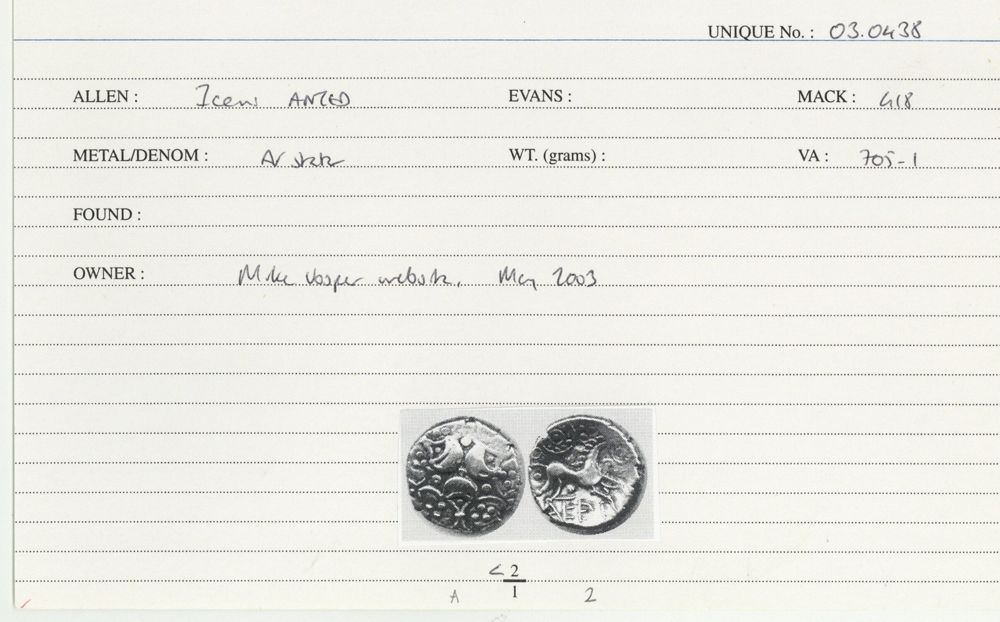 UNIQUE No. : 03.0438
ALLEN : Iceni ANTED EVANS : MACK : 418
METAL/DENOM : AV stater WT. (grams) : VA : 705-1
FOUND :
OWNER : Mike Vosper website, May 2003
< 2
A 1 2